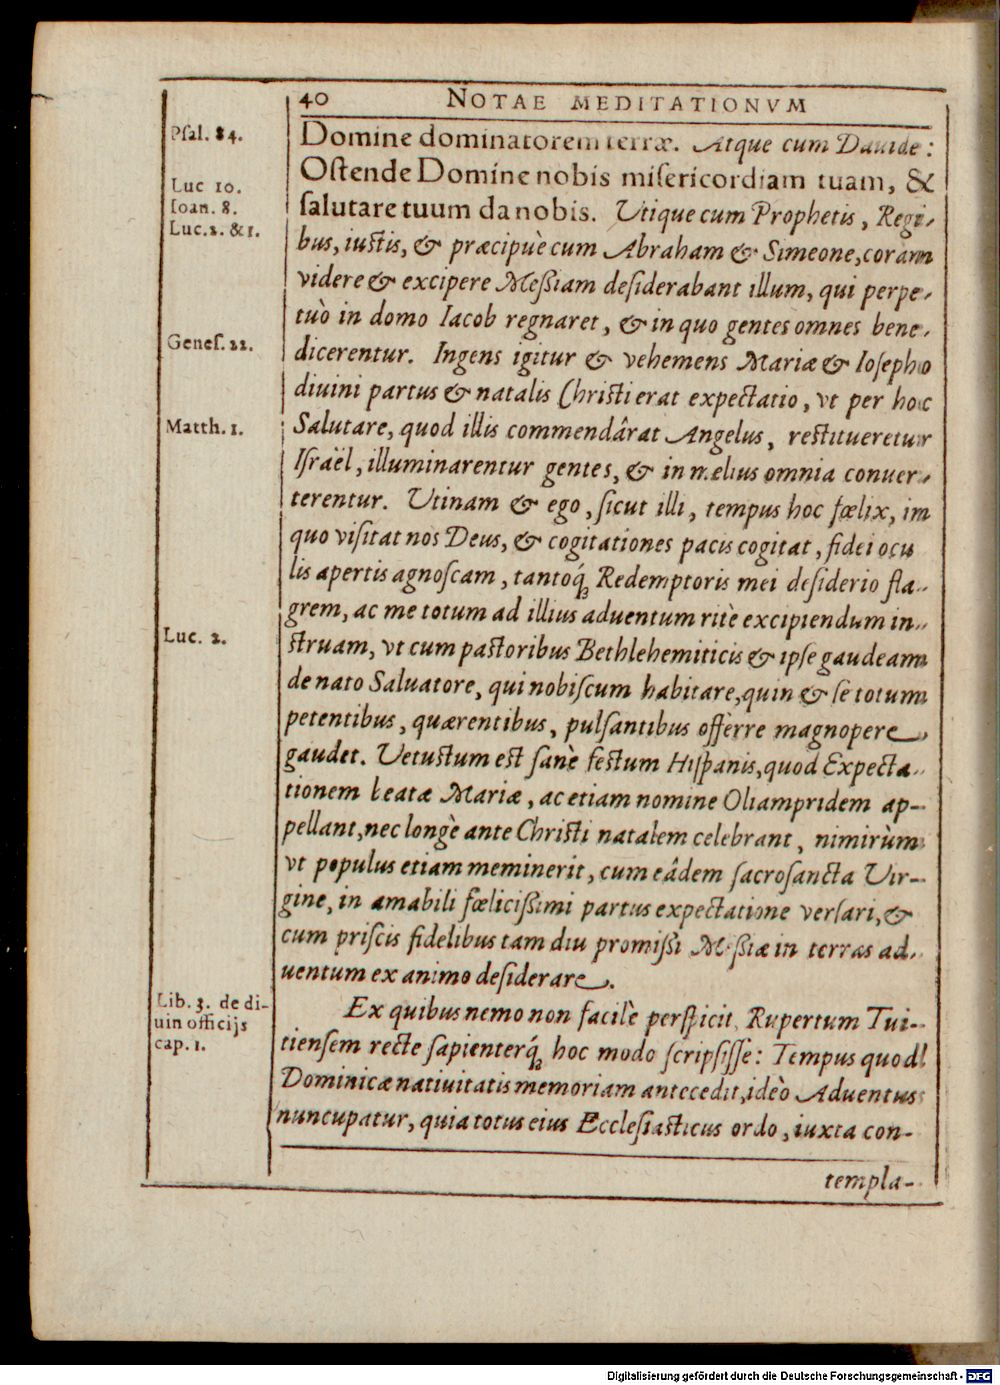 40 NOTAE MEDITATIONVM
Psal. 84.
Domine dominatorem terræ. Atque cum Dauide:
Ostende Domine nobis misericordiam tuam, &
Luc 10.
Ioan. 8.
Luc. 2. & 1.
salutare tuum da nobis. Utique cum Prophetis, Regi-
bus, iustis, & præcipuè cum Abraham & Simeone, coram
videre & excipere Messiam desiderabant illum, qui perpe-
tuò in domo Iacob regnaret, & in quo gentes omnes bene-
Genes. 22.
dicerentur. Ingens igitur & vehemens Mariæ & Iosepho
diuini partus & natalis Christi erat expectatio, vt per hoc
Matth. 1.
Salutare, quod illis commendârat Angelus, restitueretur
Israël, illuminarentur gentes, & in melius omnia conuer-
terentur. Utinam & ego, sicut illi, tempus hoc fœlix, in
quo visitat nos Deus, & cogitationes pacis cogitat, fidei ocu
lis apertis agnoscam, tantoq́; Redemptoris mei desiderio fla-
grem, ac me totum ad illius aduentum ritè excipiendum in-
Luc. 2.
struam, vt cum pastoribus Bethlehemiticis & ipse gaudeam
de nato Saluatore, qui nobiscum habitare, quin & se totum
petentibus, quærentibus, pulsantibus offerre magnopere
gaudet. Vetustum est sanè festum Hispanis, quod Expecta-
tionem beatæ Mariæ, ac etiam nomine O iampridem ap-
pellant, nec longè ante Christi natalem celebrant, nimirùm
vt populus etiam meminerit, cum eâdem sacrosancta Vir-
gine, in amabili fœlicissimi partus expectatione versari, &
cum priscis fidelibus tam diu promissi Messiæ in terras ad-
uentum ex animo desiderare.
Lib. 3. de di-
uin officijs
cap. 1.
Ex quibus nemo non facilè perspicit, Rupertum Tui-
tiensem recte sapienterq́; hoc modo scripsisse: Tempus quod
Dominicæ natiuitatis memoriam antecedit, ideò Aduentus
nuncupatur, quia totus eius Ecclesiasticus ordo, iuxta con-
templa-
Digitalisierung gefördert durch die Deutsche Forschungsgemeinschaft - DFG